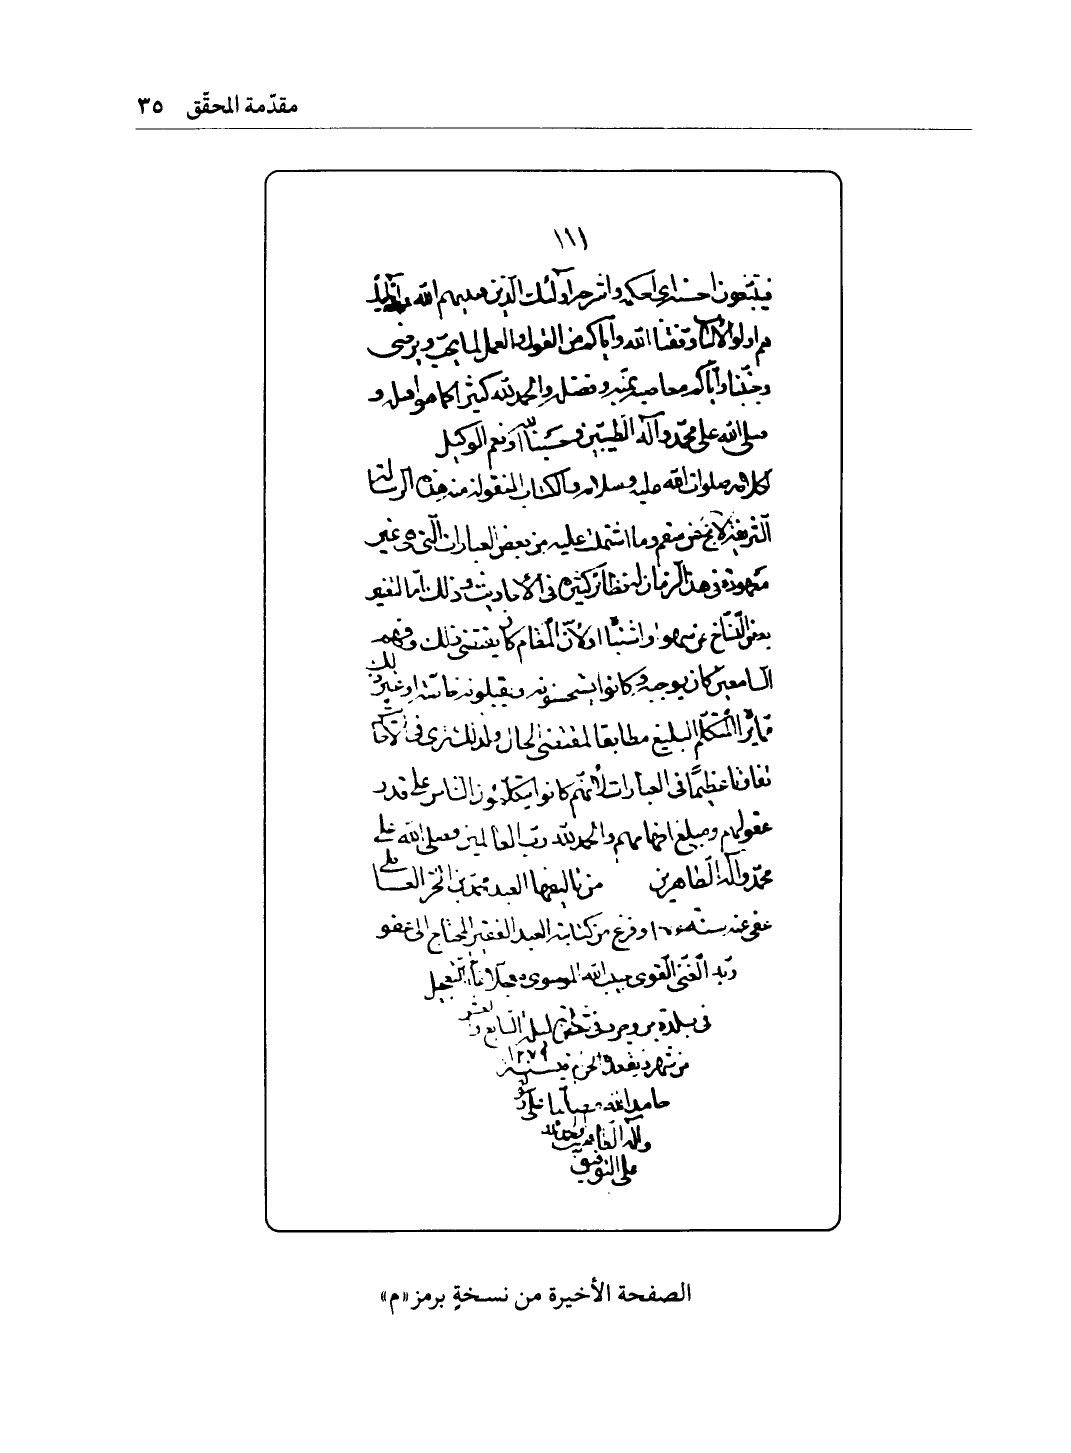 مقدّمة المحقّق ٣٥
١١١
فيتبعون احسنه اي احكمه واشرحه اولئك الذين هديهم الله واولئك
هم اولوا الالباب وفقنا الله واياكم من القول والعمل لما يحب ويرضى
وجنبنا واياكم معاصيه بمنه وفضله والحمد لله كثيرا كما هو اهله و
صلى الله على محمد وآله الطيبين وحسبنا الله ونعم الوكيل
كلامه صلوات الله عليه وسلامه والكتاب المنقولة منه هذه الرسالة
الشريفة لا يخ من سقم وما اشتملت عليه من بعض العبارات التي هي غير
معهودة في هذا الزمان لها نظائر كثيرة في الأحاديث وذلك اما لتغيير
بعض النساخ عن سهو او اشتباه او لأن المقام كان يقتضي ذلك وفهم
السامعين كان يوجبه وكانوا يستحسنونه ويقبلونه خاصة او غير ذلك
المتكلم البليغ مطابقا لمقتضى الحال ولذلك ترى في الأحاديث
تفاوتا عظيما في العبارات لأنهم كانوا يتكلمون الناس على قدر
عقولهم ومبلغ افهامهم والحمد لله رب العالمين وصلى الله على
محمد وآله الطاهرين من تاليفها العبد محمد بن الحر العاملي
عفي عنه سنة وفرغ من كتابته العبد الفقير المحتاج الى عفو
ربه الغني القوي حبيب الله الموسوي
في بلدة بروجرد في ليلة السابع والعشر
من شهر ذيقعدة الحرام من سنة ١٢٧٩
حامدا لله مصليا على
وآله
على التوفيق
الصفحة الأخيرة من نسخةٍ برمز «م»